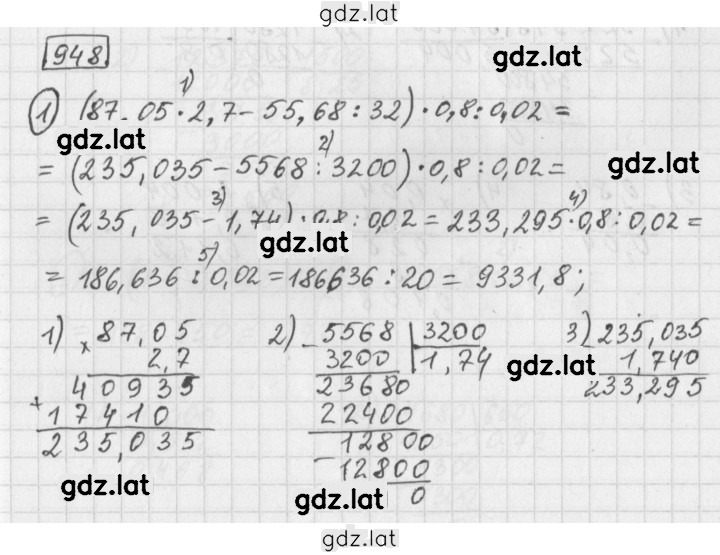 gdz.lat
948
gdz.lat
1)
1 (87.05·2,7-55,68:32)·0,8:0,02=
gdz.lat
2)
=(235,035-5568:3200)·0,8:0,02=
gdz.lat
3) 4)
=(235,035-1,74)·0,8:0,02=233,295·0,8:0,02=
gdz.lat
5)
=186,636:0,02=186636:20=9331,8;
1) × 87,05
2,7
40935
+ 17410
235,035
2) - 5568 3200
3200 1,74
23680
22400
12800
- 12800
0
3) 235,035
1,740
233,295
gdz.lat
gdz.lat
gdz.lat
gdz.lat